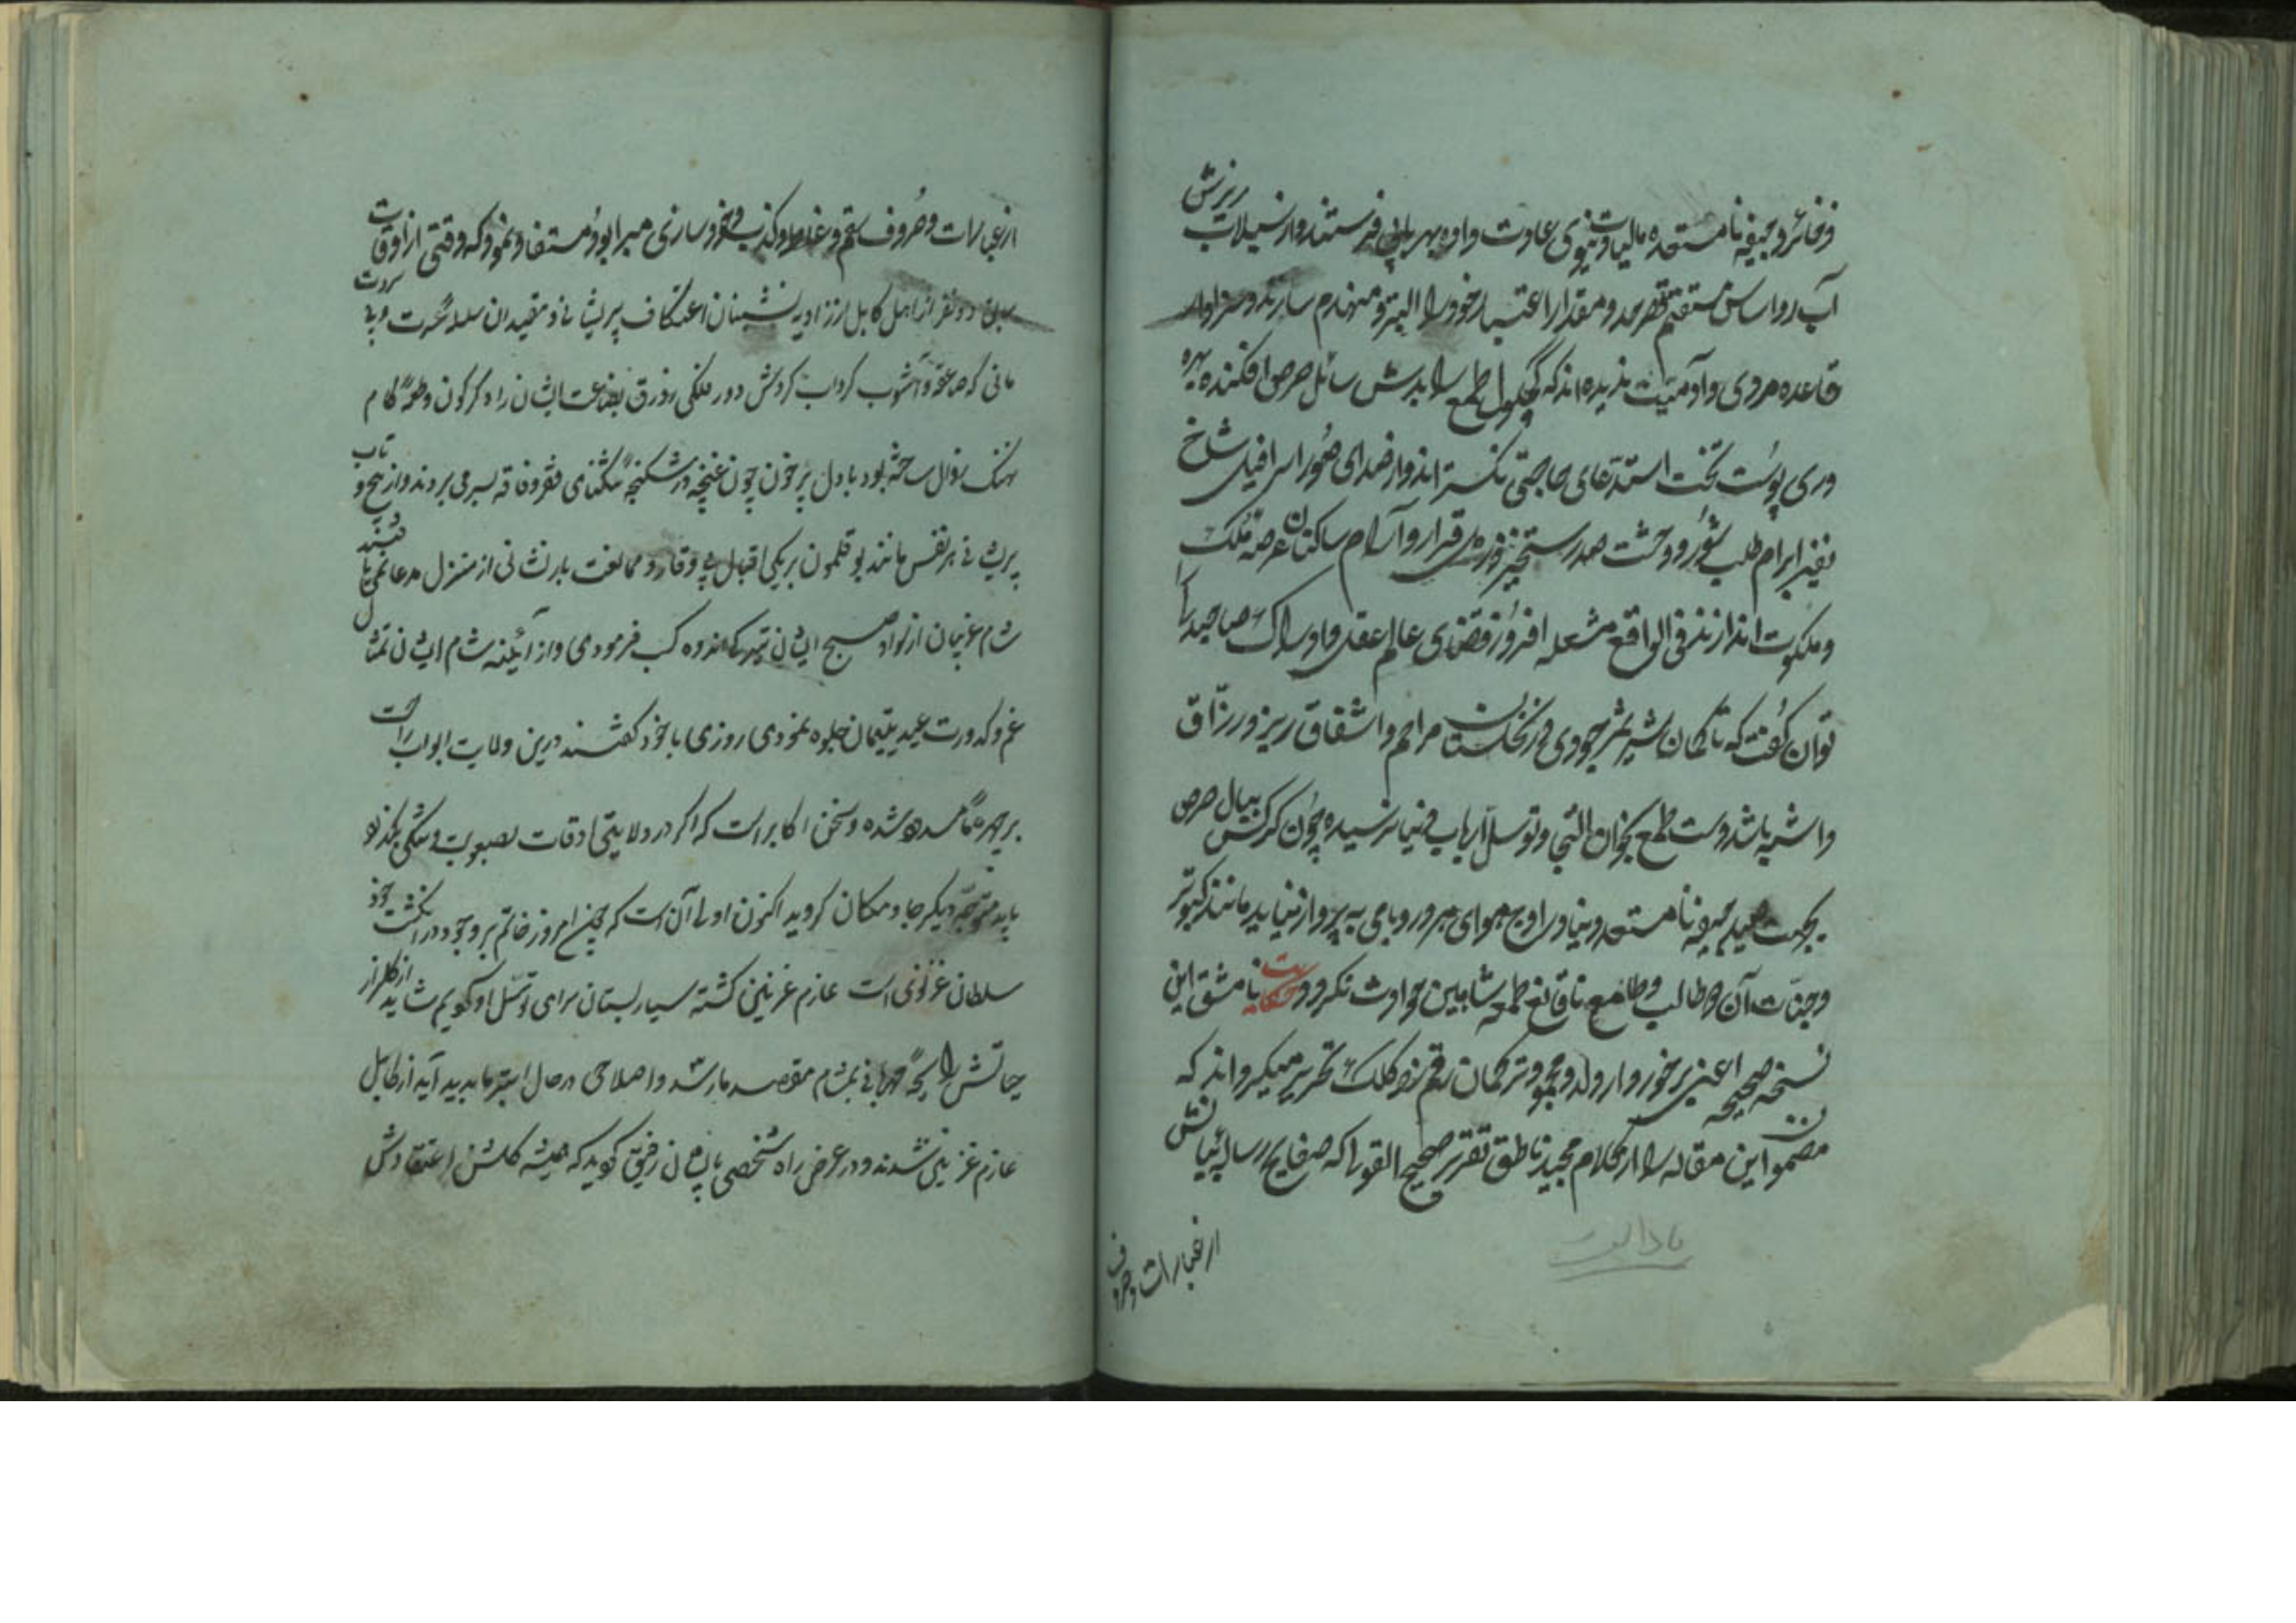 ذخائر و جیفه نا مستعده مالیات دنیوی عادت داده بهر بابی فرستند و از سیلاب ریزش
آب رو اساس مستقیم قصر قدر و مقدار اعتبار خود را البته منهدم سازند و سزاوار
قاعده مردی و آدمیت ندیده اند که کچکول طمع را بدش سائل حرص افکنده بهره
دری پوست تخت استدعای حاجتی نگسترانند و از صدای صور اسرافیل شاخ
نفیر ابرام طلب شور و وحشت صد رستخیز در قرار و آرام ساکنان عرصه ملک
و ملکوت اندازند فی الواقع مشعله افروز فضای عالم عقل و ادراک صاحبدلی را
توان گفت که تا کمان شیر ثمر جودی در نخلستان مراحم و اشفاق ریز و رزاق
داشته باشد دست طمع بخوان التجا و توسل ارباب دنیا نرسیده چون کرکس ببال حرص
بجهت صید جیفه نا مستعد دنیا در اوج هوای هر در و بامی به پرواز نیاید مانند کبوتر
وجنات آن طالب و طامع نا قانع طعمه شاهین حوادث نگردد حکایت نا مشق این
نسخه صحیحه اعنی برخوردار ولد محمود ترکمان رقم زد کلک تحریر میگرداند که
مضمون این مقاله را از کلام مجید ناطق تقریر صحیح القولی که صفایح رساله بیانش
از عبارات و حروف
از عبارات و حروف سقم و غلط و کذب و خود سازی مبرا بود مستفاد نمود که وقتی از اوقات
سابق دو نفر از اهل کابل از زاویه نشینان اعتکاف پریشانی و مقیدان سلسله عسرت و بی
مانی که صاعقه و آشوب گرداب گردش دور فلکی زورق بضاعت ایشان را دگرگون و طعمه کام
نهنگ زوال ساخته بود با دل پر خون چون غنچه در شکنجه تنگنای فقر و فاقه بسر می بردند و از پیچ و تاب
پریشانی هر نفس مانند بوقلمون بریکی اقبال بی وقار و مخالفت بار نشانی از منزل مدعا نمی یافتند
شام غریبان از سواد صبح ایشان تیرگی اندوه کسب فرمودی و از آئینه شام ایشان تمثال
غم و کدورت عید یتیمان جلوه نمودی روزی با خود گفتند درین ولایت ابواب راحت
بر چهره ما مسدود شده و سخن اکابر است که اگر در ولایتی اوقات بصعوبت و تنگی بگذرد
باید متوجه دیگر جا و مکان گردید اکنون اولی آن است که چون امروز خاتم بر وجود در انگشت جود
سلطان غزنوی است عازم غزنین گشته سیار بستان سرای توسل او گویم شاید از گلزار
حیاتش رایحه مهربانی بمشام مقصد ما رسد و اصلاحی در حال ابتر ما پدید آید از کابل
عازم غزنین شدند و در عرض راه شخصی با ایشان رفیق گوید که همیشه گلشن اعتقادش